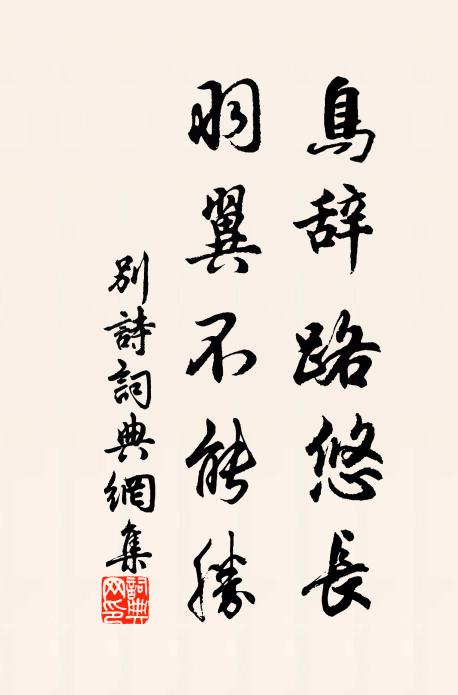 鳥辞路悠長
羽翼不能勝
別詩詞典網集
詞典網印